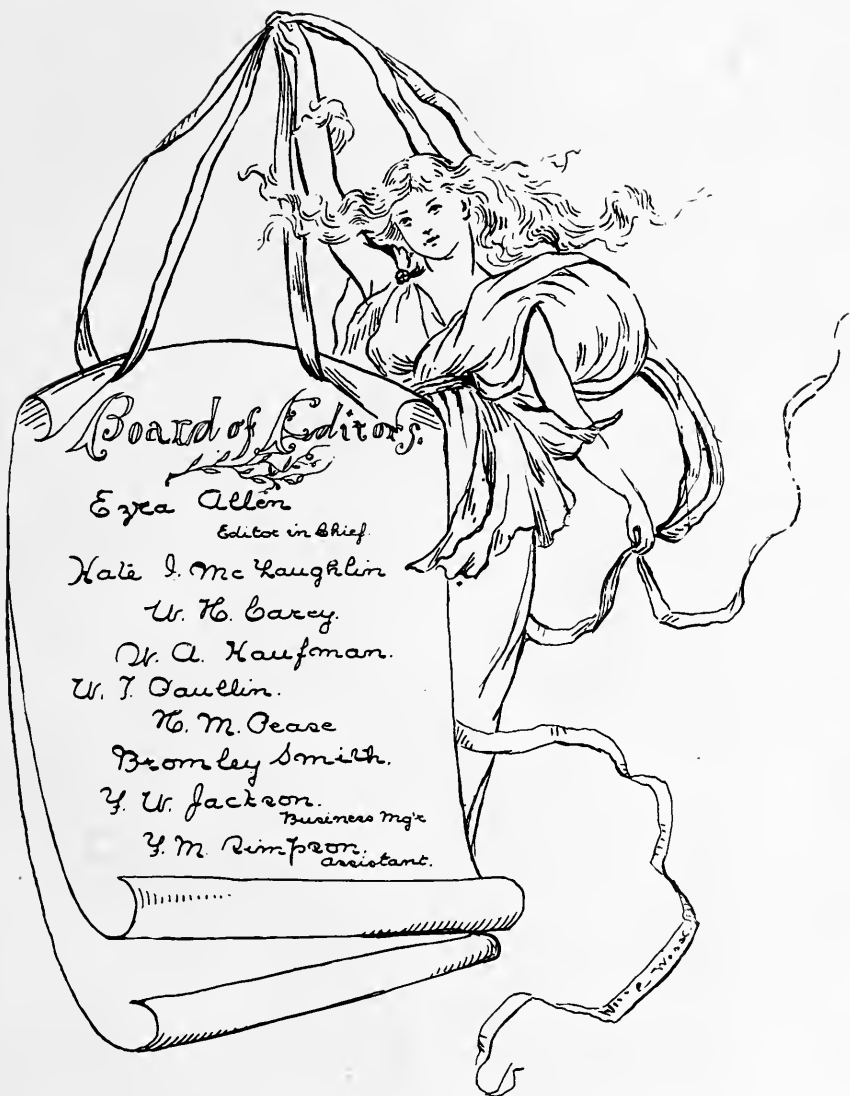 Board of Editors.
Ezra Allen
Editor in Chief.
Kate I. McLaughlin
W. H. Carey.
W. A. Kaufman.
W. T. Paullin.
H. M. Pease
Bromley Smith.
L. W. Jackson.
Business Mg'r
L. M. Simpson.
Assistant.